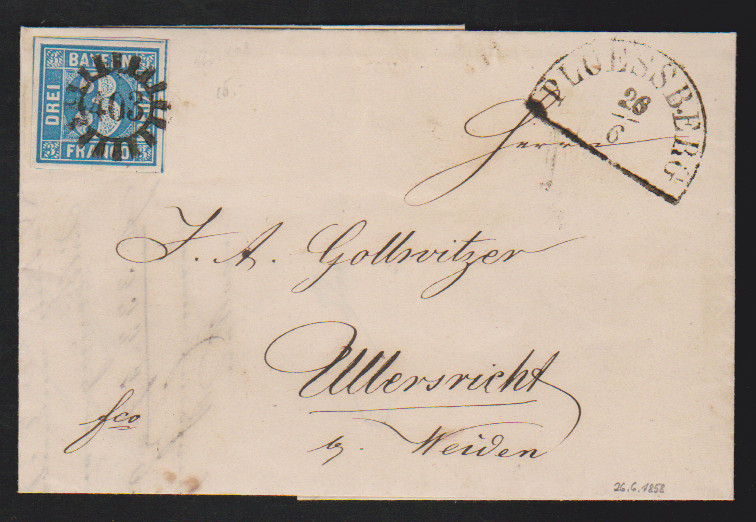 BAYERN
DREI
FRANCO
PLOESSBERG
26
6
Herrn
J. A. Gollwitzer
Ullersricht
fco
b/ Weiden
26.6.1858